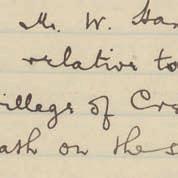 Mr. W. Ha
relative to
villegs of Cr
ath on the s